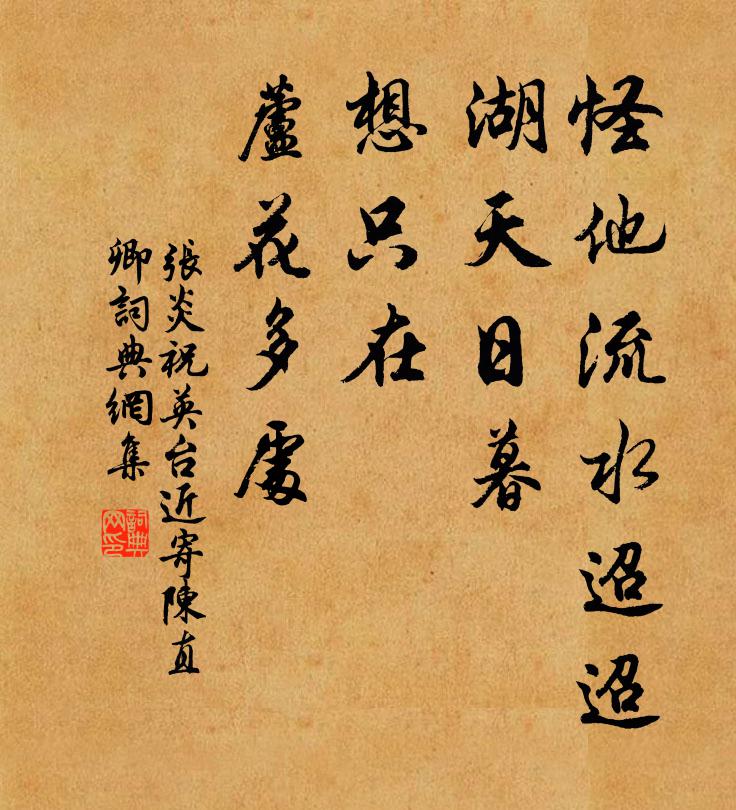 怪他流水迢迢
湖天日暮
想只在
蘆花多處
張炎祝英台近寄陳直
卿詞典網集
詞典
网印